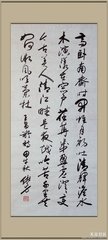 高卧南斋时开帷月初吐清辉澹水
木演漾在窗户苒苒几盈虚澄澄变
今古美人清江畔是夜越吟苦千里
如何微风吹兰杜